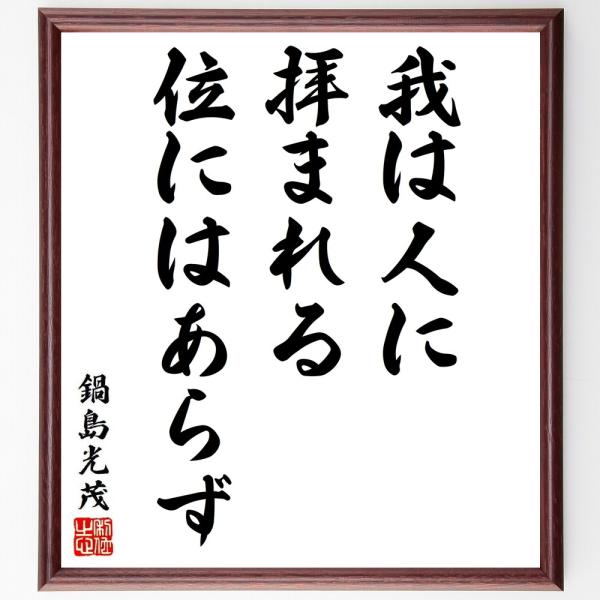 我は人に
拝まれる
位にはあらず
鍋島光茂